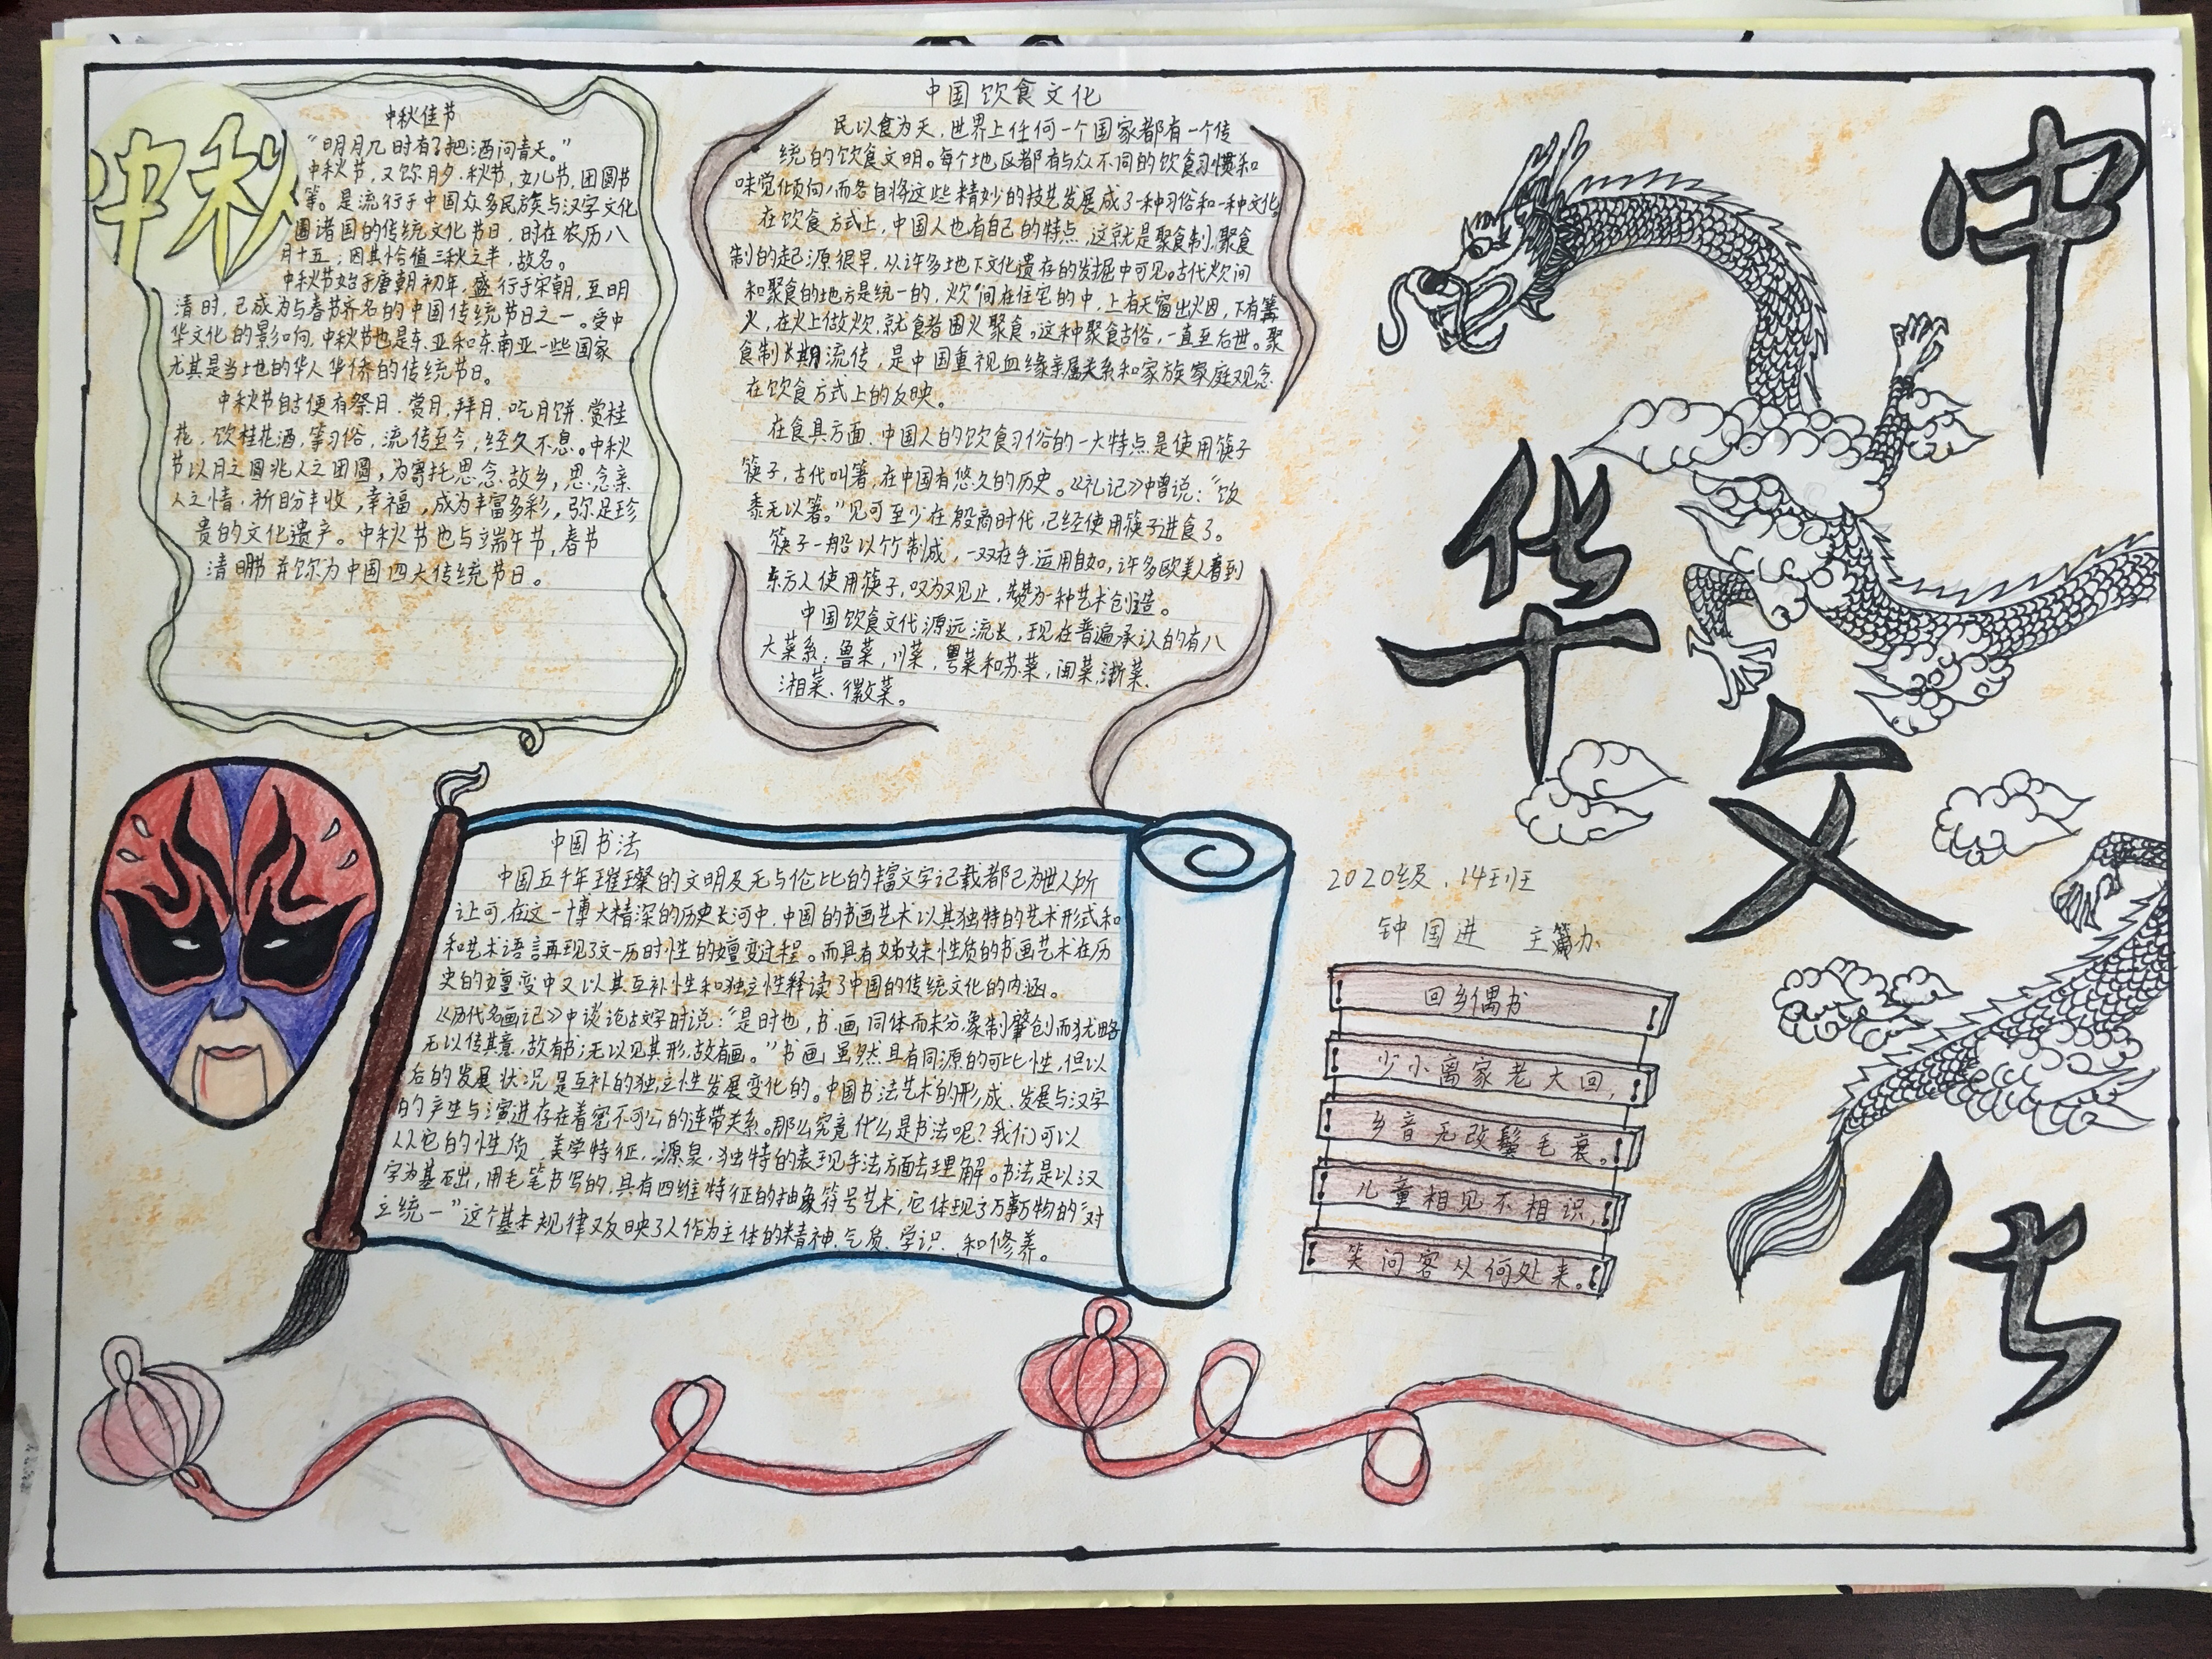 中华文化
中秋
中秋佳节
“明月几时有？把酒问青天。”
中秋节，又称月夕、秋节，女儿节，团圆节
等。是流行于中国众多民族与汉字文化
圈诸国的传统文化节日，时在农历八
月十五；因其恰值三秋之半，故名。
中秋节始于唐朝初年，盛行于宋朝，至明
清时，已成为与春节齐名的中国传统节日之一。受中
华文化的影响，中秋节也是东亚和东南亚一些国家
尤其是当土地的华人华侨的传统节日。
中秋节自古便有祭月、赏月，拜月、吃月饼、赏桂
花，饮桂花酒，等习俗，流传至今，经久不息。中秋
节以月之圆兆人之团圆，为寄托思念故乡，思念亲
人之情，祈盼丰收，幸福，成为丰富多彩，弥足珍
贵的文化遗产。中秋节也与端午节，春节
清明节并称为中国四大传统节日。
中国饮食文化
民以食为天，世界上任何一个国家都有一个传
统的饮食文明。每个地区都有与众不同的饮食习惯和
味觉倾向，而各自将这些精妙的技艺发展成了一种习俗和一种文化。
在饮食方式上，中国人也有自己的特点，这就是聚食制，聚食
制的起源很早，从许多地下文化遗存的发掘中可见。古代炊间
和聚食的地方是统一的，炊间在住宅的中，上有天窗出火因，下有篝
火，在火上做炊，就食者围火聚食。这种聚食古俗，一直至后世。聚
食制长期流传，是中国重视血缘亲属关系和家族家庭观念
在饮食方式上的反映。
在食具方面，中国人的饮食习俗的一大特点是使用筷子
筷子，古代叫箸，在中国有悠久的历史。《礼记》中曾说：“饮
黍无以箸。”见可至少在殷商时代，已经使用筷子进食了。
筷子一般以竹制成，一双在手，运用自如，许多欧美人看到
东方人使用筷子，叹为观止，赞为一种艺术创造。
中国饮食文代源远流长，现在普遍承认的有八
大菜系：鲁菜，川菜，粤菜和苏菜，闽菜，浙菜、
湘菜、徽菜。
中国书法
中国五千年璀璨的文明及无与伦比的丰富文字记载都已为世人所
认可，在这一博大精深的历史长河中，中国的书画艺术以其独特的艺术形式和
和艺术语言再现了这一历时性的嬗变过程。而具有姊妹性质的书画艺术在历
史的嬗变中又以其互补性和独立性释读了中国的传统文化的内涵。
《历代名画记》中谈论古文字时说：“是时也，书画同体而未分，象制肇创而犹略
无以传其意，故有书；无以见其形，故有画。”书画虽然具有同源的可比性，但以
后的发展状况是互补的独立性发展变化的。中国书法艺术的形成、发展与汉字
的产生与演进存在着密不可分的连带关系。那么究竟什么是书法呢？我们可以
从它的性质、美学特征，源泉，独特的表现手法方面去理解。书法是以汉
字为基础，用毛笔书写的，具有四维特征的抽象符号艺术，它体现了万事万物的“对
立统一”这个基本规律又反映了人作为主体的精神、气质、学识、和修养。
2020级，14班
钟国进 主办
回乡偶书
少小离家老大回，
乡音无改鬓毛衰。
儿童相见不相识，
笑问客从何处来。